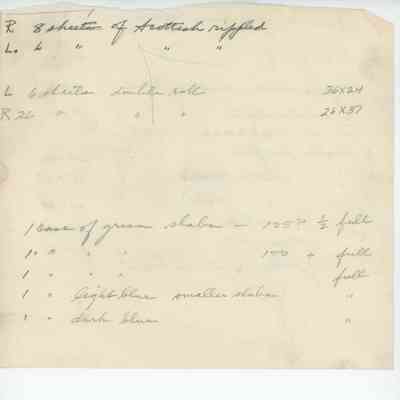 R 8 sheets of Scottish rippled
L. 6 " " "
L 6 sheets double roll 36X24
R 26 " " " 26X37
1 case of green slabs – 100 ½ full
1 " " " 100 + full
1 " " " full
1 " light blue smaller slabs "
1 " dark blue "